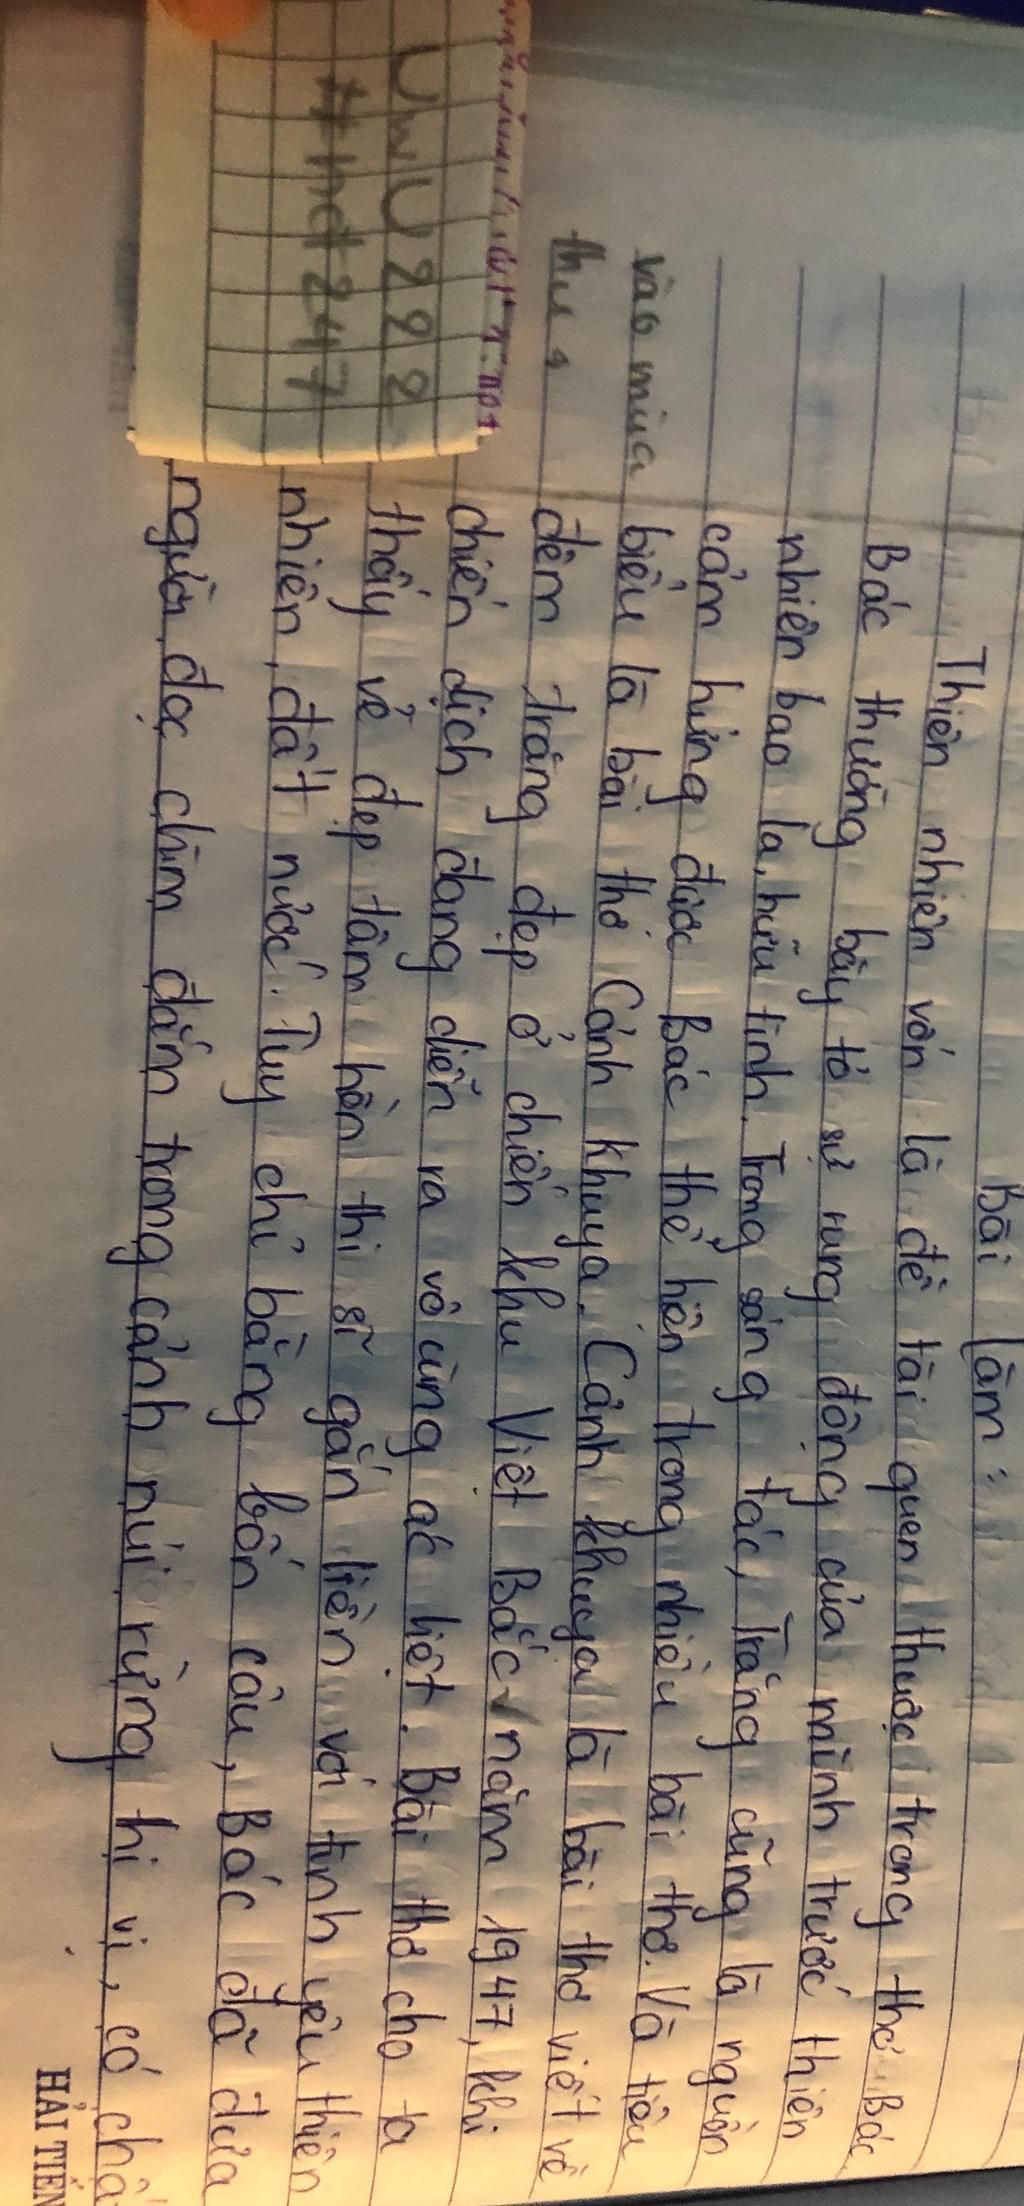 Bài làm:
Thiên nhiên vốn là đề tài quen thuộc trong thơ Bác.
Bác thường bày tỏ sự rung động của mình trước thiên
nhiên bao la, hữu tình. Trong sáng tác, Trăng cũng là nguồn
cảm hứng được Bác thể hiện trong nhiều bài thơ. Và tiêu
biểu là bài thơ Cảnh Khuya. Cảnh khuya là bài thơ viết về
vào mùa
thu
đêm trăng đẹp ở chiến khu Việt Bắc √ năm 1947, khi
chiến dịch đang diễn ra vô cùng ác liệt. Bài thơ cho ta
thấy vẻ đẹp tâm hồn thi sĩ gắn liền với tình yêu thiên
nhiên, đất nước. Tuy chỉ bằng bốn câu, Bác đã đưa
người đọc chìm đắm trong cảnh núi rừng thi vị, có
UwU 882
#hdt247
HẢI TIẾN